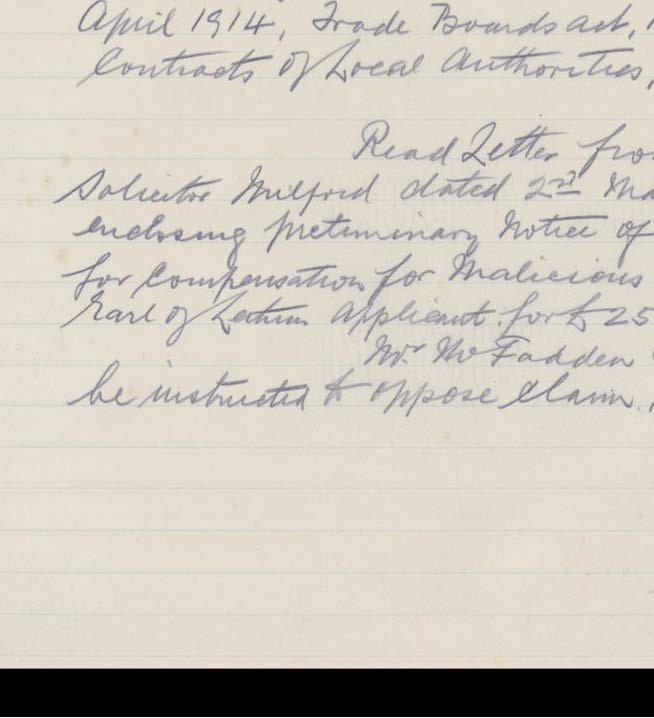 April 1914, Trade Boards act,
Contracts of Local Authorities,
Read Letter from
Solicitor Milford dated 2nd Ma
enclosing preliminary Notice of
for Compensation for Malicious
Earl of Leitrim Applicant. for £25
Mr. McFadden
be instructed to oppose Claim.